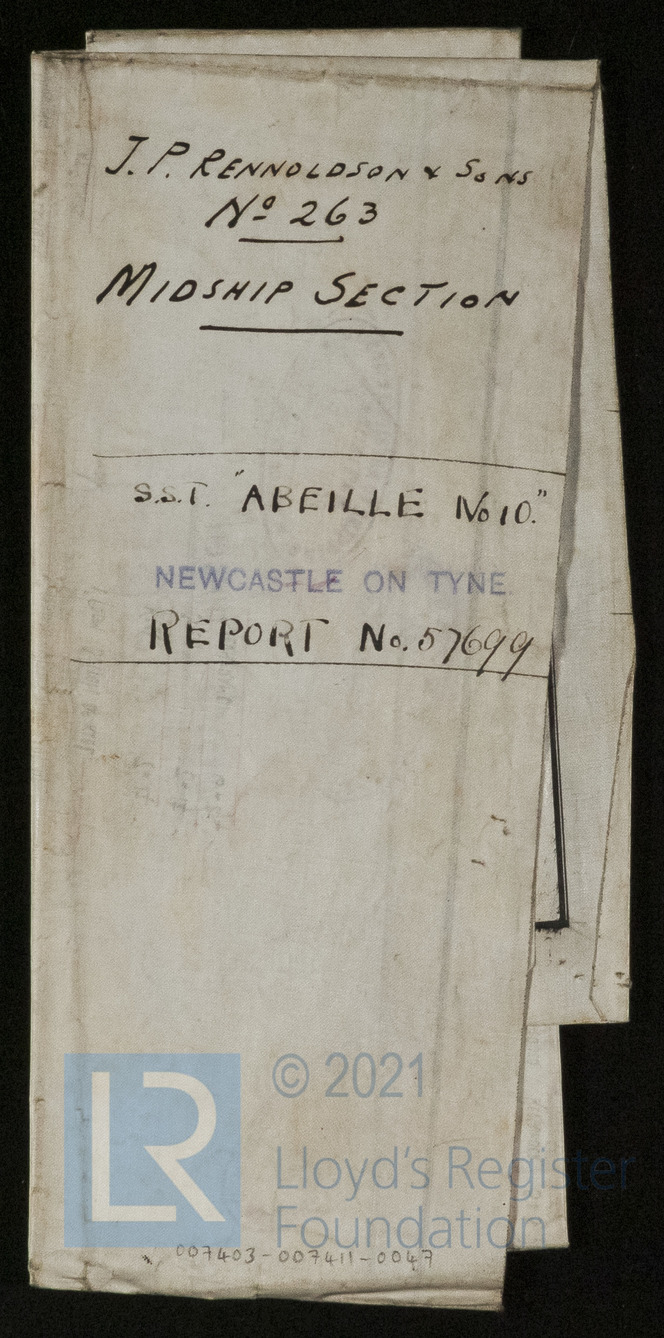 J. P. RENNOLDSON & SONS
Nº 263
MIDSHIP SECTION
S.S.T. "ABEILLE No 10."
NEWCASTLE ON TYNE
REPORT No. 57699
LR
© 2021
Lloyd's Register
Foundation
007403-007411-0047